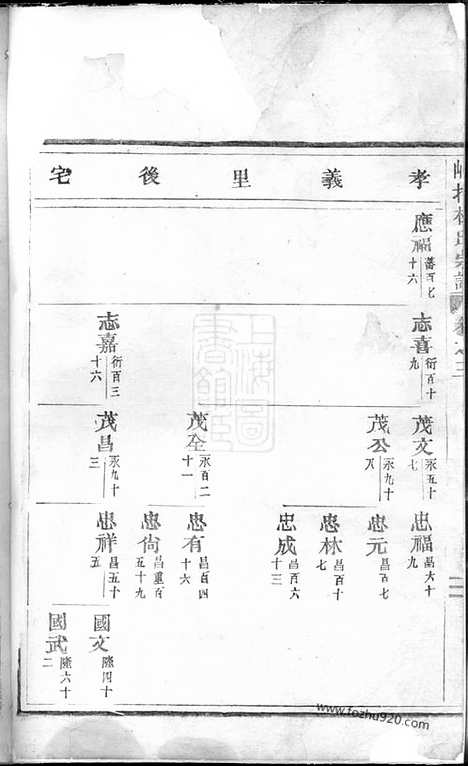 孝義里後宅
應福 蕃百七十六
志喜 衍百十九
志嘉 衍百三十六
茂文 永五十七
茂公 永九十八
茂全 永百二十一
茂昌 永九十三
忠福 昌六十九
忠元 昌百七
忠林 昌百十七
忠成 昌百六十三
忠有 昌百四十六
忠尙 昌重百五十九
忠祥 昌五十五
國文 隆四十
國武 隆六十二
卷之三
上海圖書館藏
www.fozhu920.com